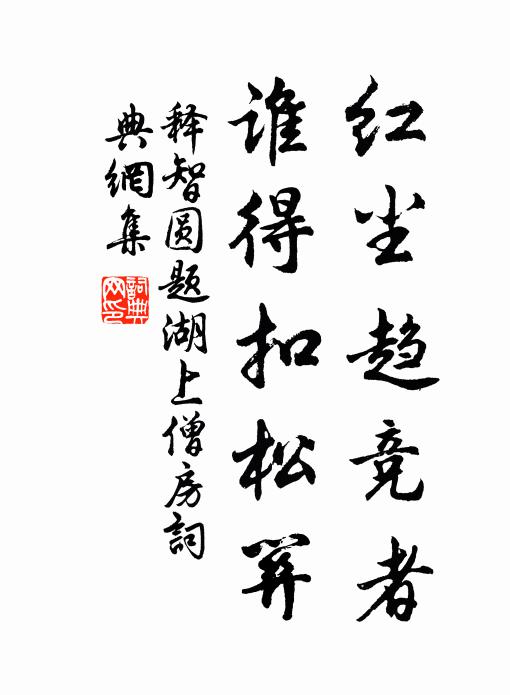 红尘趋竞者
谁得扣松关
释智圆题湖上僧房詞
典網集
詞典
网印